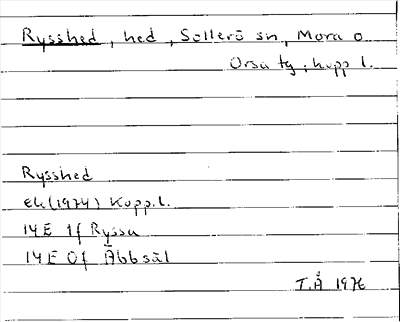 Rysshed, hed, Sollerö sn, Mora o
Orsa tg, kopp l.
Rysshed
Ek(1974) Kopp.l.
14E 1f Ryssa
14E 0f Åbbsäl
T.Å 1976